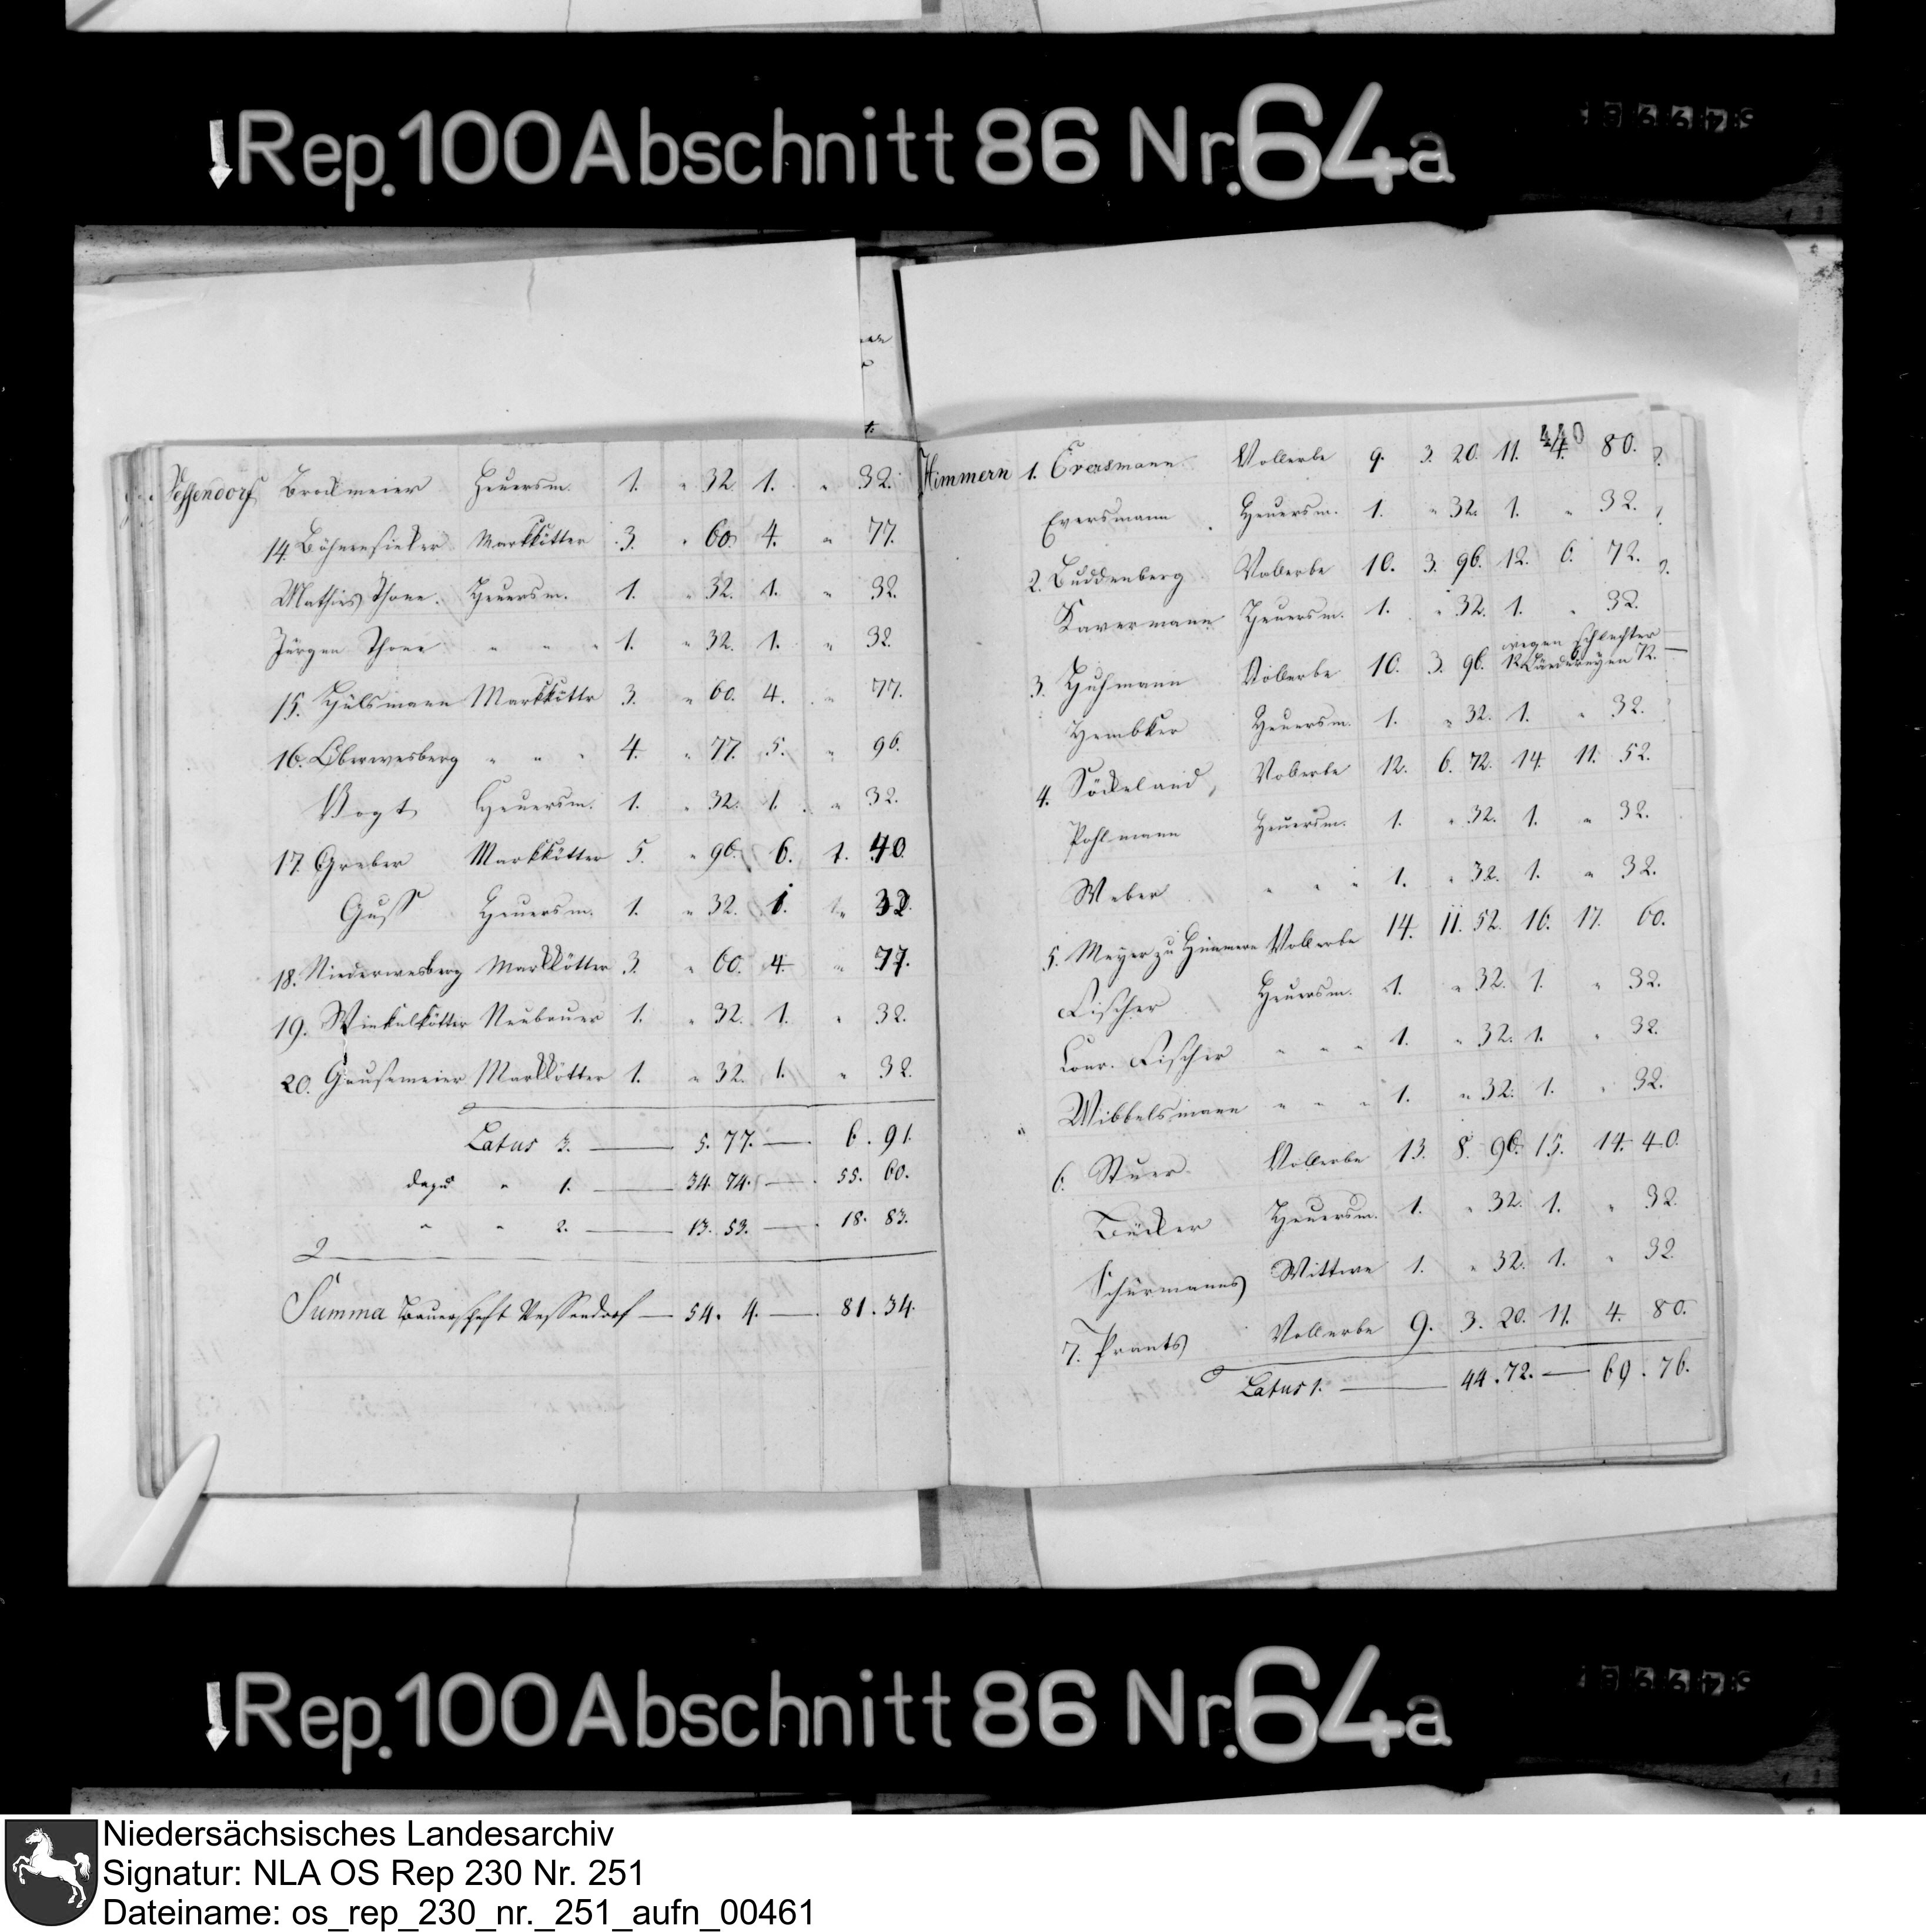 Rep. 100 Abschnitt 86 Nr. 64a
Vessendorf Brockmeier Heuersm. 1. " 32 1. " 32.
14. Böhnensieker Markkötter 3. " 60. 4. " 77.
Mathias Thone. Heuersm. 1. " 32. 1. " 32.
Jürgen Thone " " " 1. " 32. 1. " 32
15. Hülsmann Markköttr 3. " 60. 4. " 77.
16. Oberwesberg " " " 4. " 77. 5. " 96.
Vogt Heuersm. 1. " 32. 1. " 32.
17. Greber Markkötter 5. " 96. 6. 1. 40.
Guss Heuersm. 1. " 32. 1. " 32.
18. Niederwesberg Markkötter 3. " 60. 4. " 77.
19. Winkelkötter Neubauer 1. " 32. 1. " 32.
20. Gausemeier Markkötter 1. " 32. 1. " 32.
Latus 3. — 5. 77. — 6. 91.
dazu " 1. — 34. 74. — 55. 60.
" " 2. — 13. 53. — 18. 83.
Summa Bauerschaft Vessendorf — 54. 4. — 81. 34.
Himmern 1. Eversmann Vollerbe 9. 3. 20. 11. 4. 80.
Eversmann Heuersm. 1. " 32. 1. " 32.
2. Buddenberg Vollerbe 10. 3. 96. 12. 6. 72.
Kavermann Heuersm. 1. " 32. 1. " 32.
wegen schlechter
3. Huhmann Vollerbe 10. 3. 96. 12. Ländereyen R. —
Hembker Heuersm. 1. " 32. 1. " 32.
4. Söckeland Vollerbe 12. 6. 72. 14. 11. 52.
Pohlmann Heuersm. 1. " 32. 1. " 32.
Weber " " " 1. " 32. 1. " 32.
5. Meyer zu Himmern Vollerbe 14. 11. 52. 16. 17. 60.
Fischer Heuersm. 1. " 32. 1. " 32.
Conr. Fischer " " " 1. " 32. 1. " 32.
Wibbelsmann " " " 1. " 32. 1. " 32.
6. Stuer Vollerbe 13. 8. 96. 15. 14. 40.
Bücker Heuersm. 1. " 32. 1. " 32.
Schürmanns Wittwe 1. " 32. 1. " 32
7. Prants Vollerbe 9. 3. 20. 11. 4. 80.
Latus 1. — 44. 72. — 69. 76.
Rep. 100 Abschnitt 86 Nr. 64a
Niedersächsisches Landesarchiv
Signatur: NLA OS Rep 230 Nr. 251
Dateiname: os_rep_230_nr._251_aufn_00461